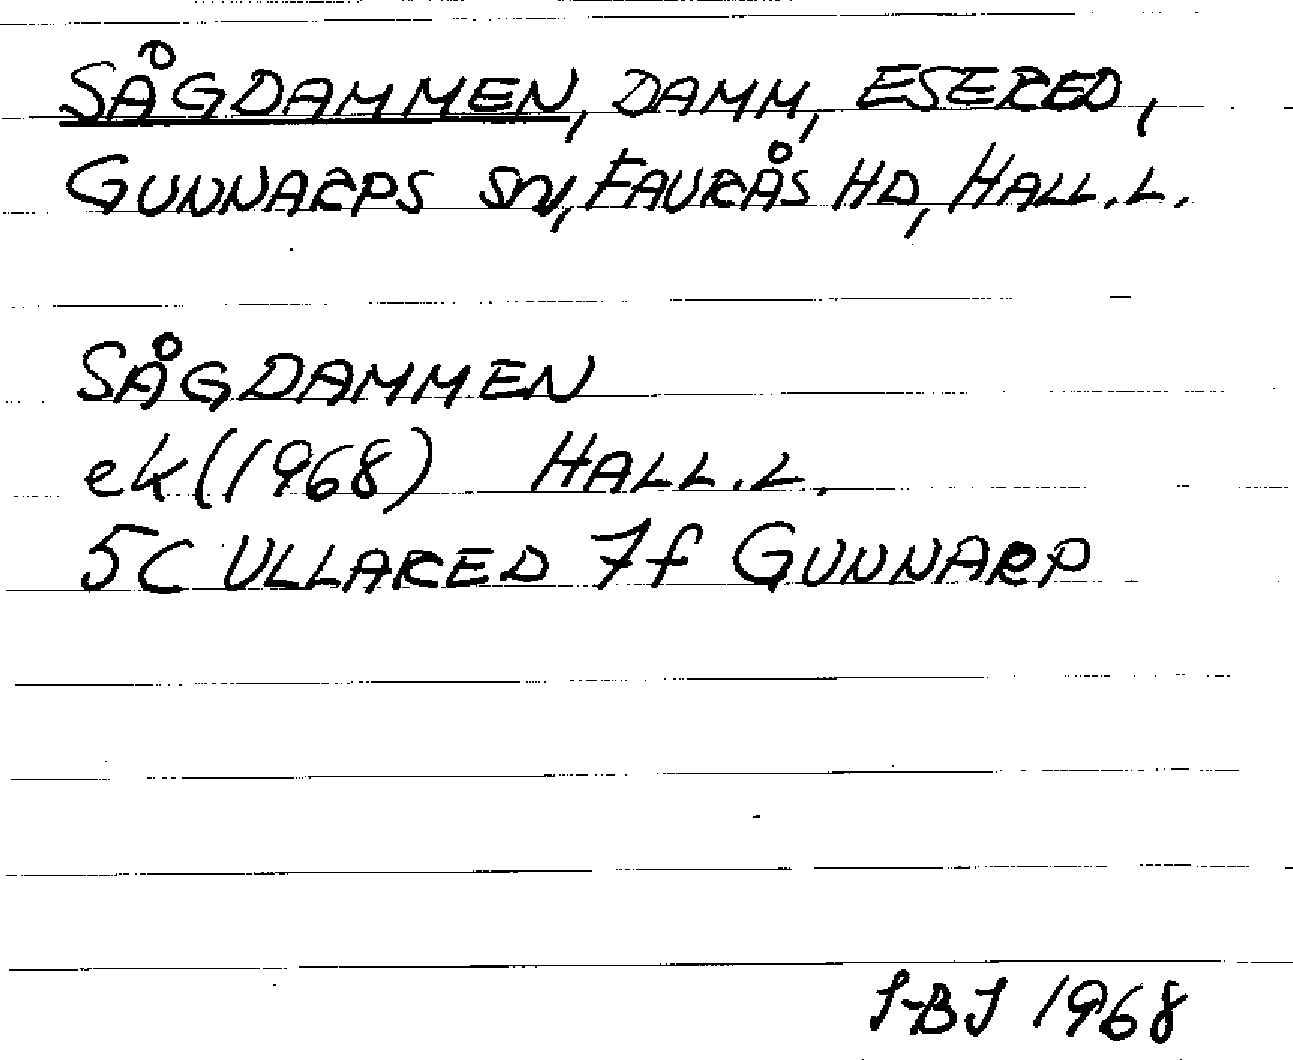 SÅGDAMMEN, DAMM, ESERED,
GUNNARPS SN, FAURÅS HD, HALL.L.
SÅGDAMMEN
ek (1968) HALL.L.
5C ULLARED 7f GUNNARP
I-BJ 1968